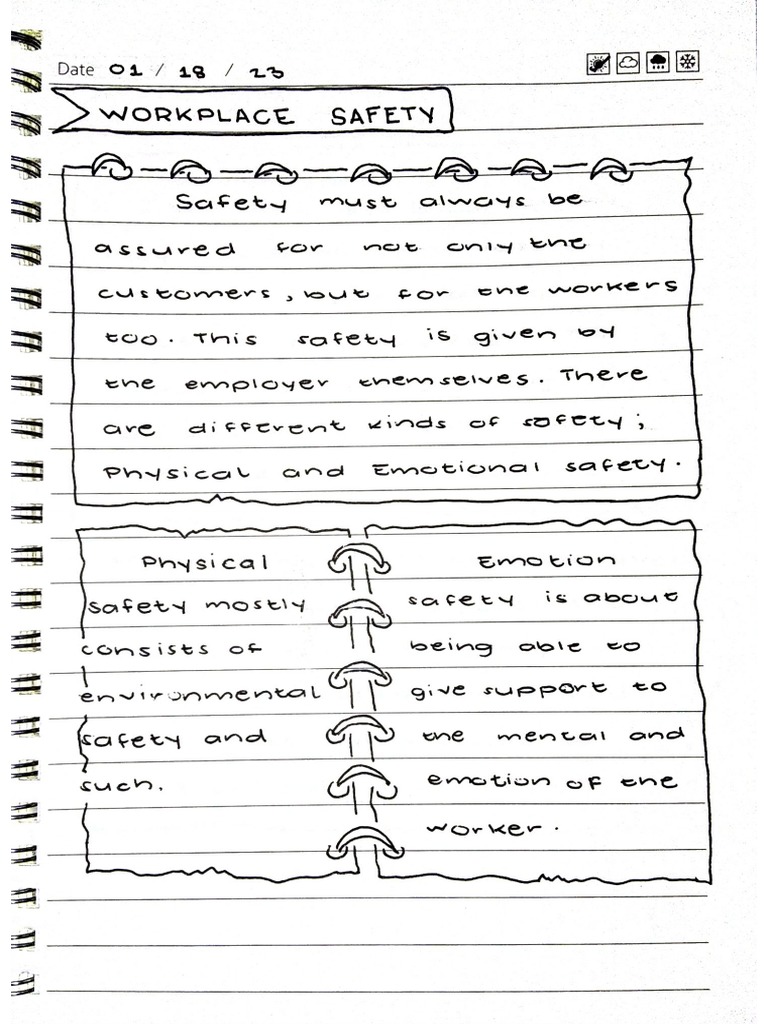 Date 01 / 18 / 23
WORKPLACE SAFETY
Safety must always be
assured for not only the
customers, but for the workers
too. This safety is given by
the employer themselves. There
are different kinds of safety;
Physical and Emotional safety.
Physical
safety mostly
consists of
environmental
safety and
such.
Emotion
safety is about
being able to
give support to
the mental and
emotion of the
worker.